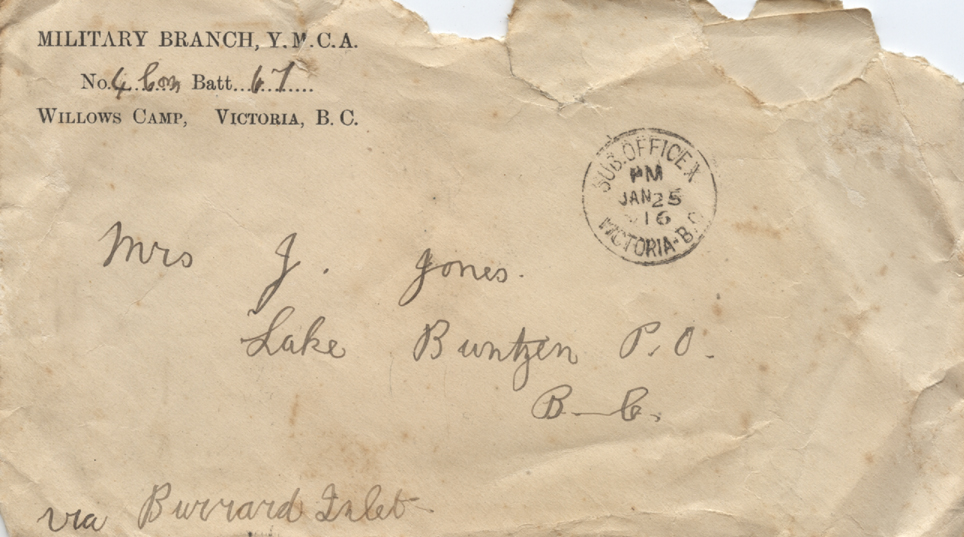 MILITARY BRANCH, Y.M.C.A.
No. 4 Com Batt... 67....
WILLOWS CAMP, VICTORIA, B. C.
SUB. OFFICE X
PM
JAN 25
16
VICTORIA-B.C
Mrs J. Jones.
Lake Buntzen P.O.
B-C.
via Burrard Inlet